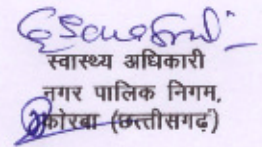 स्वास्थ्य अधिकारी
नगर पालिक निगम,
कोरबा (छत्तीसगढ़)